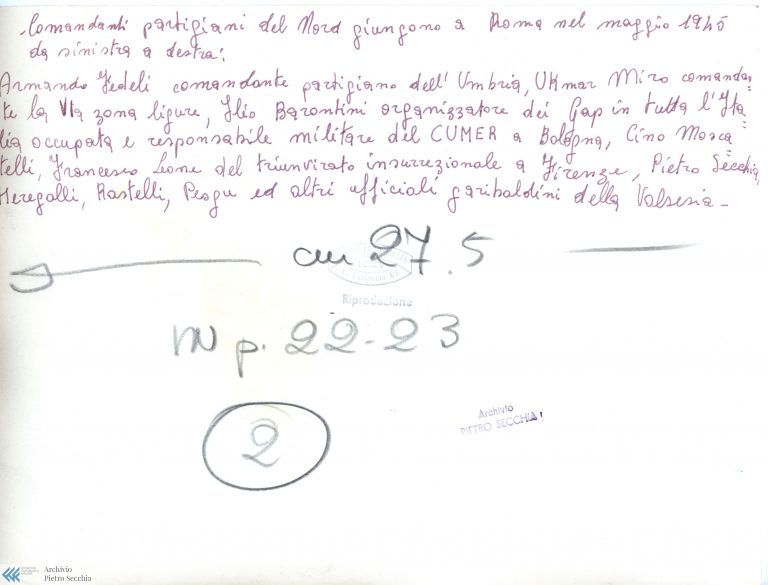 Comandanti partigiani del Nord giungono a Roma nel maggio 1945
da sinistra a destra:
Armando Fedeli comandante partigiano dell'Umbria, UKmar Miro comandan=
te la VIa zona ligure, Ilio Barontini organizzatore dei Gap in tutta l'Ita=
lia occupata e responsabile militare del CUMER a Bologna, Cino Mosca=
telli, Francesco Leone del triunvirato insurrezionale a Firenze, Pietro Secchia,
Meregalli, Rastelli, Pesgu ed altri ufficiali garibaldini della Valsesia -
cm 27.5
Riproduzione
IN p. 22-23
2
Archivio
PIETRO SECCHIA
Archivio
Pietro Secchia